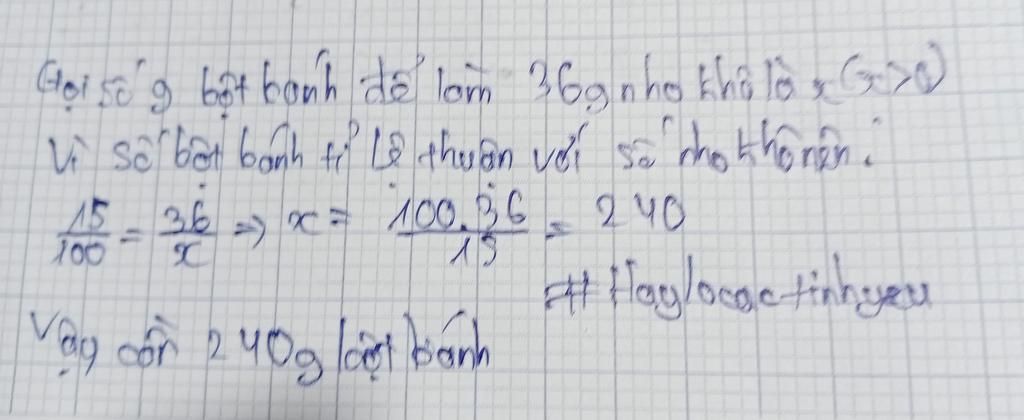 Gọi số g bột bánh để làm 36g nho khô là x (x>0)
Vì số bột bánh tỉ lệ thuận với số nho khô nên:
15/100 = 36/x => x = 100.36/15 = 240
#Haylocactinhyeu
Vậy cần 240g bột bánh